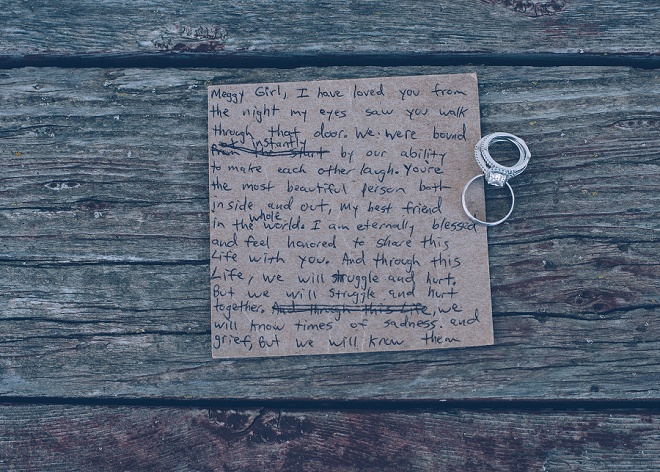 Meggy Girl, I have loved you from
the night my eyes saw you walk
through that door. We were bound
instantly
from the start by our ability
to make each other laugh. You're
the most beautiful person both
inside and out, My best friend
whole
in the world. I am eternally blessed
and feel honored to share this
Life with you. And through this
Life, we will struggle and hurt.
But we will struggle and hurt
together. And through this Life, we
will know times of sadness. and
grief, But we will know them